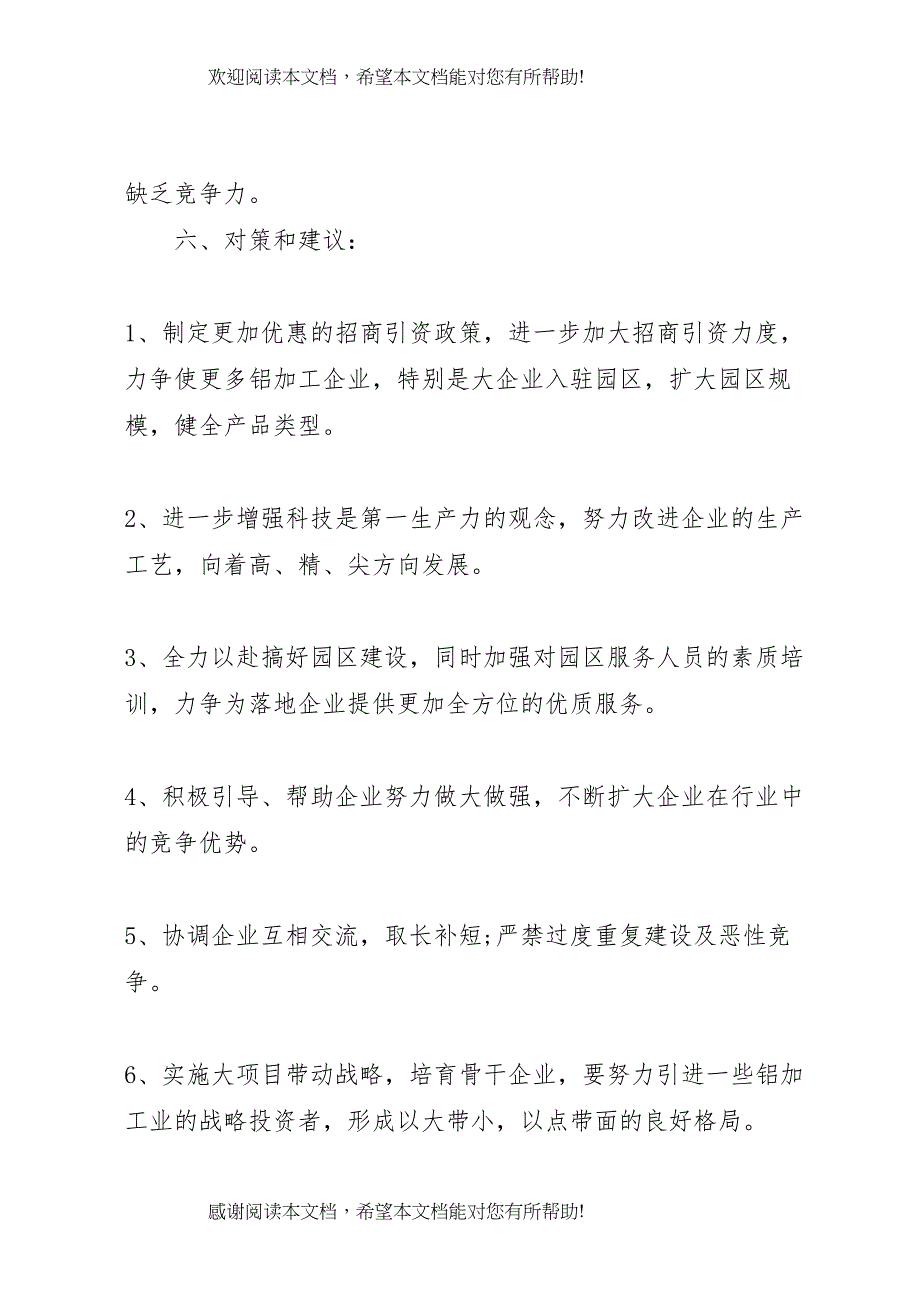 欢迎阅读本文档，希望本文档能对您有所帮助!
缺乏竞争力。
六、对策和建议：
1、制定更加优惠的招商引资政策，进一步加大招商引资力度，
力争使更多铝加工企业，特别是大企业入驻园区，扩大园区规
模，健全产品类型。
2、进一步增强科技是第一生产力的观念，努力改进企业的生产
工艺，向着高、精、尖方向发展。
3、全力以赴搞好园区建设，同时加强对园区服务人员的素质培
训，力争为落地企业提供更加全方位的优质服务。
4、积极引导、帮助企业努力做大做强，不断扩大企业在行业中
的竞争优势。
5、协调企业互相交流，取长补短;严禁过度重复建设及恶性竞
争。
6、实施大项目带动战略，培育骨干企业，要努力引进一些铝加
工业的战略投资者，形成以大带小，以点带面的良好格局。
感谢阅读本文档，希望本文档能对您有所帮助!